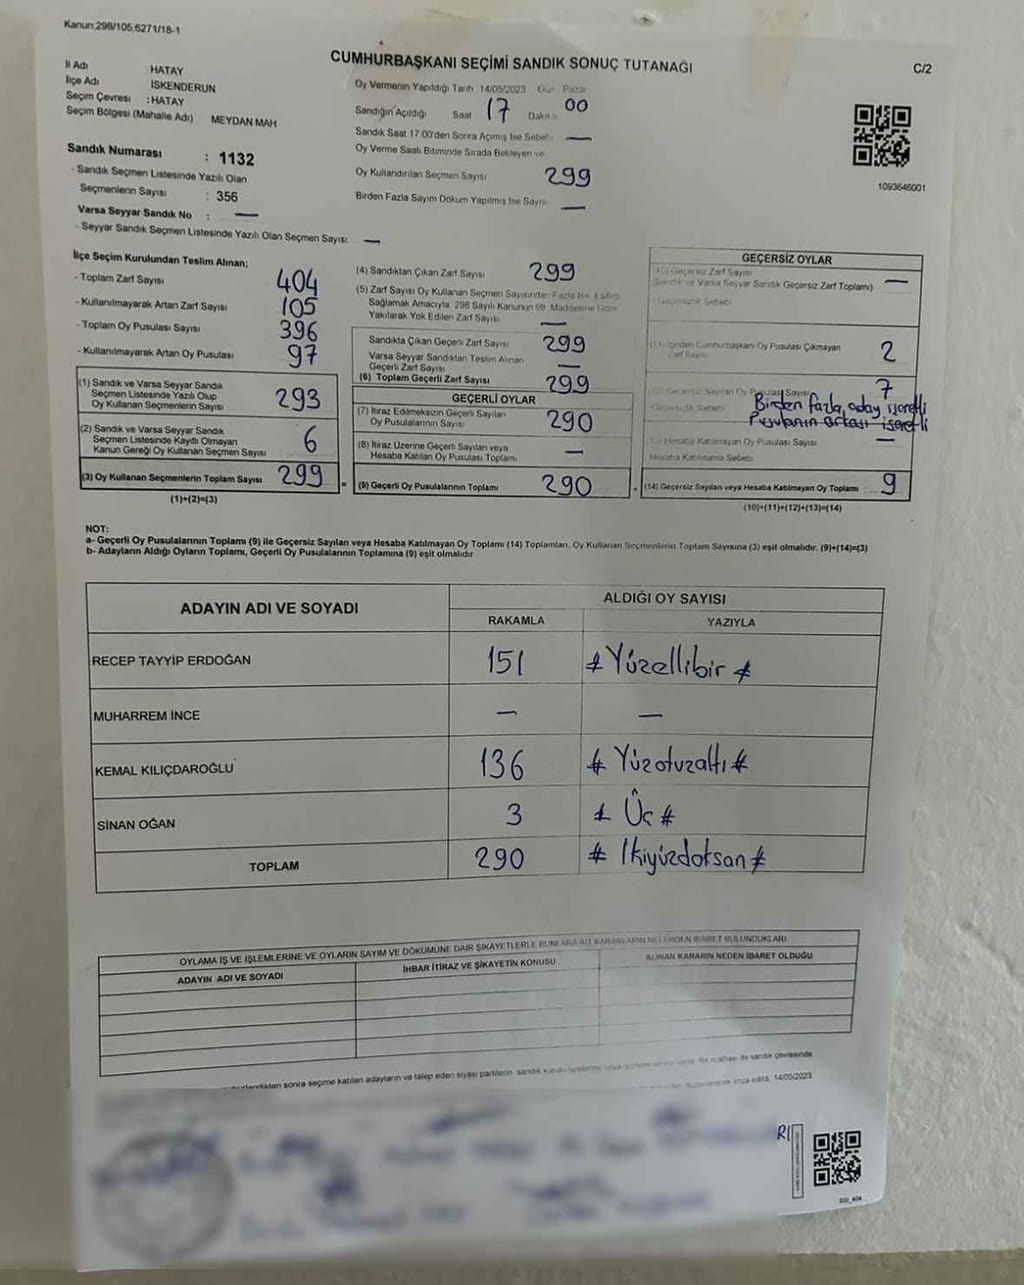 Kanun 298/105,6271/18-1
CUMHURBAŞKANI SEÇİMİ SANDIK SONUÇ TUTANAĞI
C/2
İl Adı HATAY
İlçe Adı İSKENDERUN
Seçim Çevresi : HATAY
Seçim Bölgesi (Mahalle Adı) MEYDAN MAH
Sandık Numarası : 1132
- Sandık Seçmen Listesinde Yazılı Olan
Seçmenlerin Sayısı : 356
Varsa Seyyar Sandık No : —
- Seyyar Sandık Seçmen Listesinde Yazılı Olan Seçmen Sayısı : —
Oy Vermenin Yapıldığı Tarih 14/05/2023 Gün Pazar
Sandığın Açıldığı Saat 17 Dakika 00
Sandık Saat 17.00'den Sonra Açılmış İse Sebebi —
Oy Verme Saati Bitiminde Sırada Bekleyen ve
Oy Kullandırılan Seçmen Sayısı 299
Birden Fazla Sayım Döküm Yapılmış İse Sayısı —
1093646001
İlçe Seçim Kurulundan Teslim Alınan;
- Toplam Zarf Sayısı 404
- Kullanılmayarak Artan Zarf Sayısı 105
- Toplam Oy Pusulası Sayısı 396
- Kullanılmayarak Artan Oy Pusulası 97
(1) Sandık ve Varsa Seyyar Sandık
Seçmen Listesinde Yazılı Olup
Oy Kullanan Seçmenlerin Sayısı 293
(2) Sandık ve Varsa Seyyar Sandık
Seçmen Listesinde Kayıtlı Olmayan
Kanun Gereği Oy Kullanan Seçmen Sayısı 6
(3) Oy Kullanan Seçmenlerin Toplam Sayısı 299
(1)+(2)=(3)
(4) Sandıktan Çıkan Zarf Sayısı 299
(5) Zarf Sayısı Oy Kullanan Seçmen Sayısından Fazla İse, Eşitliği
Sağlamak Amacıyla, 298 Sayılı Kanunun 98. Maddesine Göre
Yakılarak Yok Edilen Zarf Sayısı —
Sandıkta Çıkan Geçerli Zarf Sayısı 299
Varsa Seyyar Sandıktan Teslim Alınan
Geçerli Zarf Sayısı —
(6) Toplam Geçerli Zarf Sayısı 299
GEÇERLİ OYLAR
(7) İtiraz Edilmeksizin Geçerli Sayılan
Oy Pusulalarının Sayısı 290
(8) İtiraz Üzerine Geçerli Sayılan veya
Hesaba Katılan Oy Pusulası Toplamı —
= (9) Geçerli Oy Pusulalarının Toplamı 290
GEÇERSİZ OYLAR
(10) Geçersiz Zarf Sayısı
(Sandık ve Varsa Seyyar Sandık Geçersiz Zarf Toplamı) —
Geçersizlik Sebebi
(11) İçinden Cumhurbaşkanı Oy Pusulası Çıkmayan
Zarf Sayısı 2
(12) Geçersiz Sayılan Oy Pusulası Sayısı 7
Geçersizlik Sebebi Birden fazla aday işaretli
Pusulanın arkası işaretli
(13) Hesaba Katılmayan Oy Pusulası Sayısı —
Hesaba Katılmama Sebebi
+ (14) Geçersiz Sayılan veya Hesaba Katılmayan Oy Toplamı 9
(10)+(11)+(12)+(13)=(14)
NOT:
a- Geçerli Oy Pusulalarının Toplamı (9) ile Geçersiz Sayılan veya Hesaba Katılmayan Oy Toplamı (14) Toplamları, Oy Kullanan Seçmenlerin Toplam Sayısına (3) eşit olmalıdır. (9)+(14)=(3)
b- Adayların Aldığı Oyların Toplamı, Geçerli Oy Pusulalarının Toplamına (9) eşit olmalıdır
ADAYIN ADI VE SOYADI ALDIĞI OY SAYISI
RAKAMLA YAZIYLA
RECEP TAYYİP ERDOĞAN 151 # Yüzellibir #
MUHARREM İNCE — —
KEMAL KILIÇDAROĞLU 136 # Yüzotuzaltı #
SİNAN OĞAN 3 # Üç #
TOPLAM 290 # İkiyüzdoksan #
OYLAMA İŞ VE İŞLEMLERİNE VE OYLARIN SAYIM VE DÖKÜMÜNE DAİR ŞİKAYETLERLE BUNLARA AİT KARARLARIN NELERDEN İBARET BULUNDUKLARI
ADAYIN ADI VE SOYADI İHBAR İTİRAZ VE ŞİKAYETİN KONUSU ALINAN KARARIN NEDEN İBARET OLDUĞU
sonra seçime katılan adayların ve talep eden siyasi partilerin sandık
da sandık çevresinde
imza edildi. 14/05/2023
R1
SSI_404